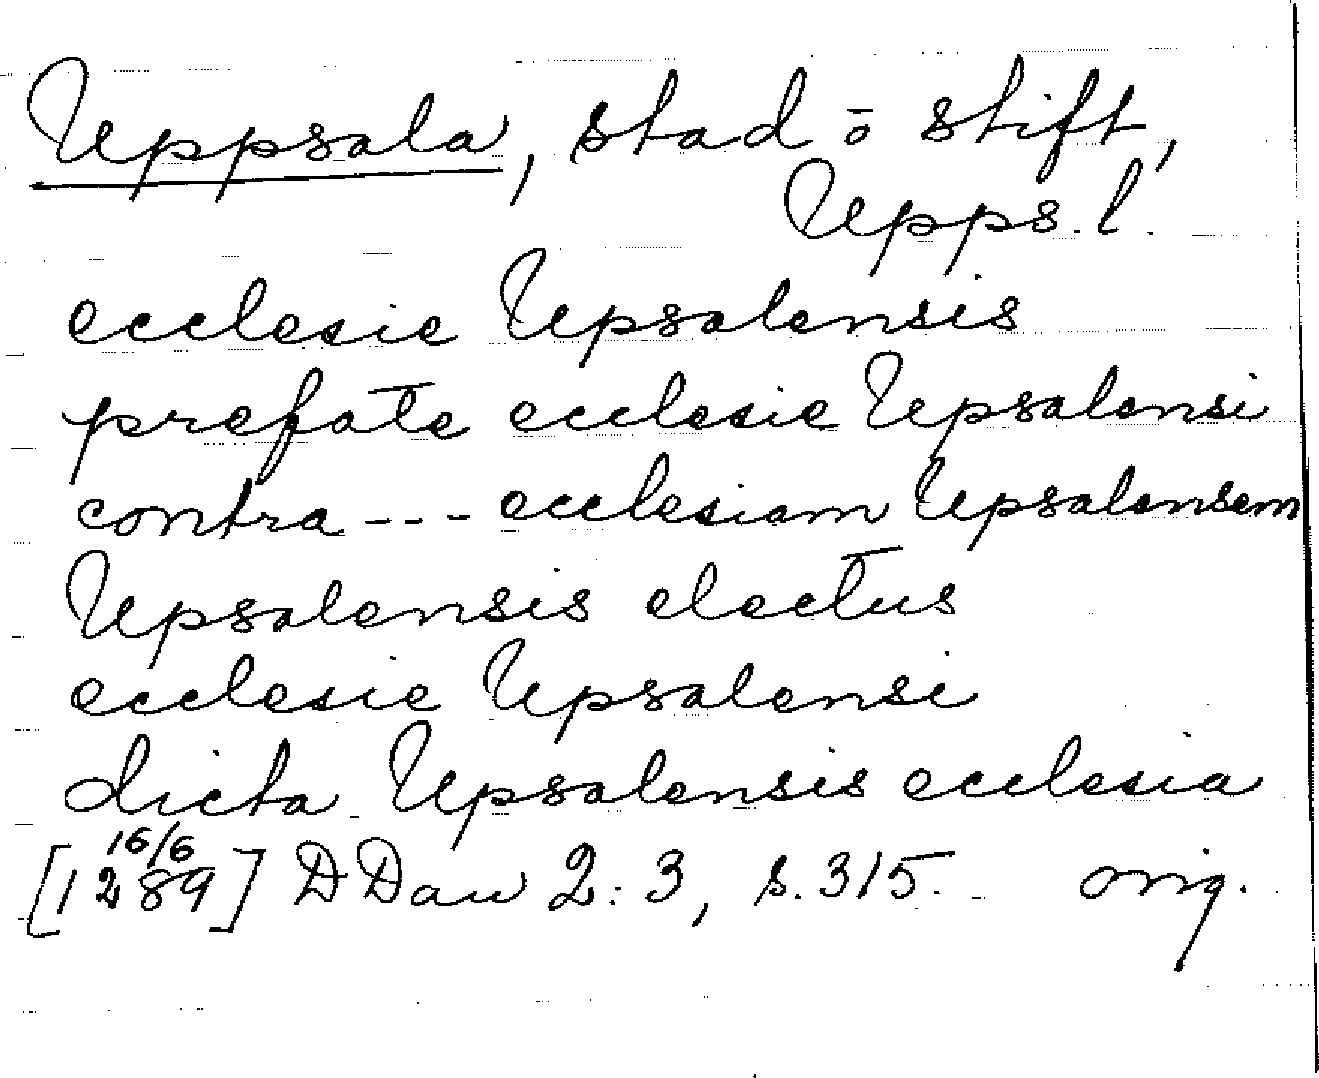 Uppsala, stad o stift,
Upps. l.
ecclesie Upsalensis
prefate ecclesie Upsalensi
contra --- ecclesiam Upsalensem
Upsalensis electus
ecclesie Upsalensi
dicta Upsalensis ecclesia
16/6
[1289] DDan 2:3, s. 315. orig.